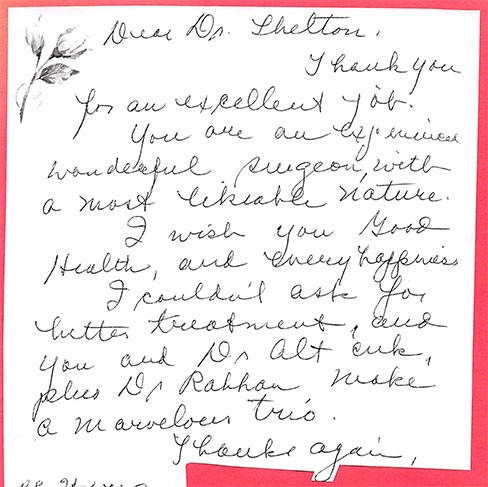 Dear Dr. Shelton,
Thank you
for an excellent job.
You are an experienced
wonderful surgeon, with
a most likeable nature.
I wish you Good
Health, and every happiness
I couldn't ask for
better treatment, and
you and Dr Alt
plus Dr Rabhan make
a marvelous trio.
Thanks again,